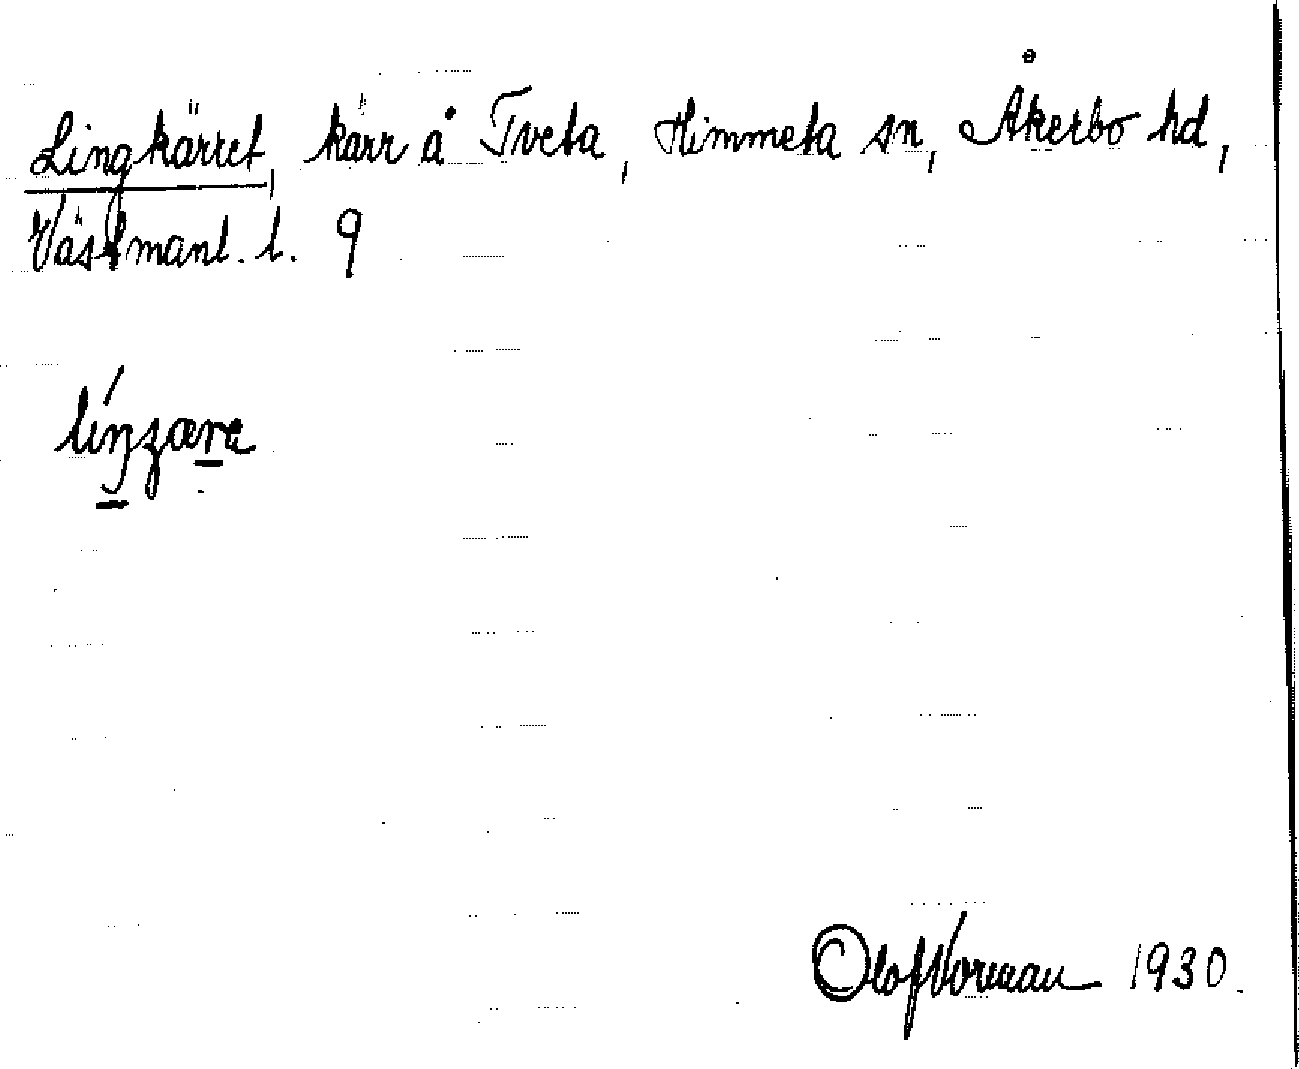 Lingkärret, kärr å Tveta, Himmeta sn, Åkerbo hd,
Västmanl. l. 9
Olof Norman 1930.